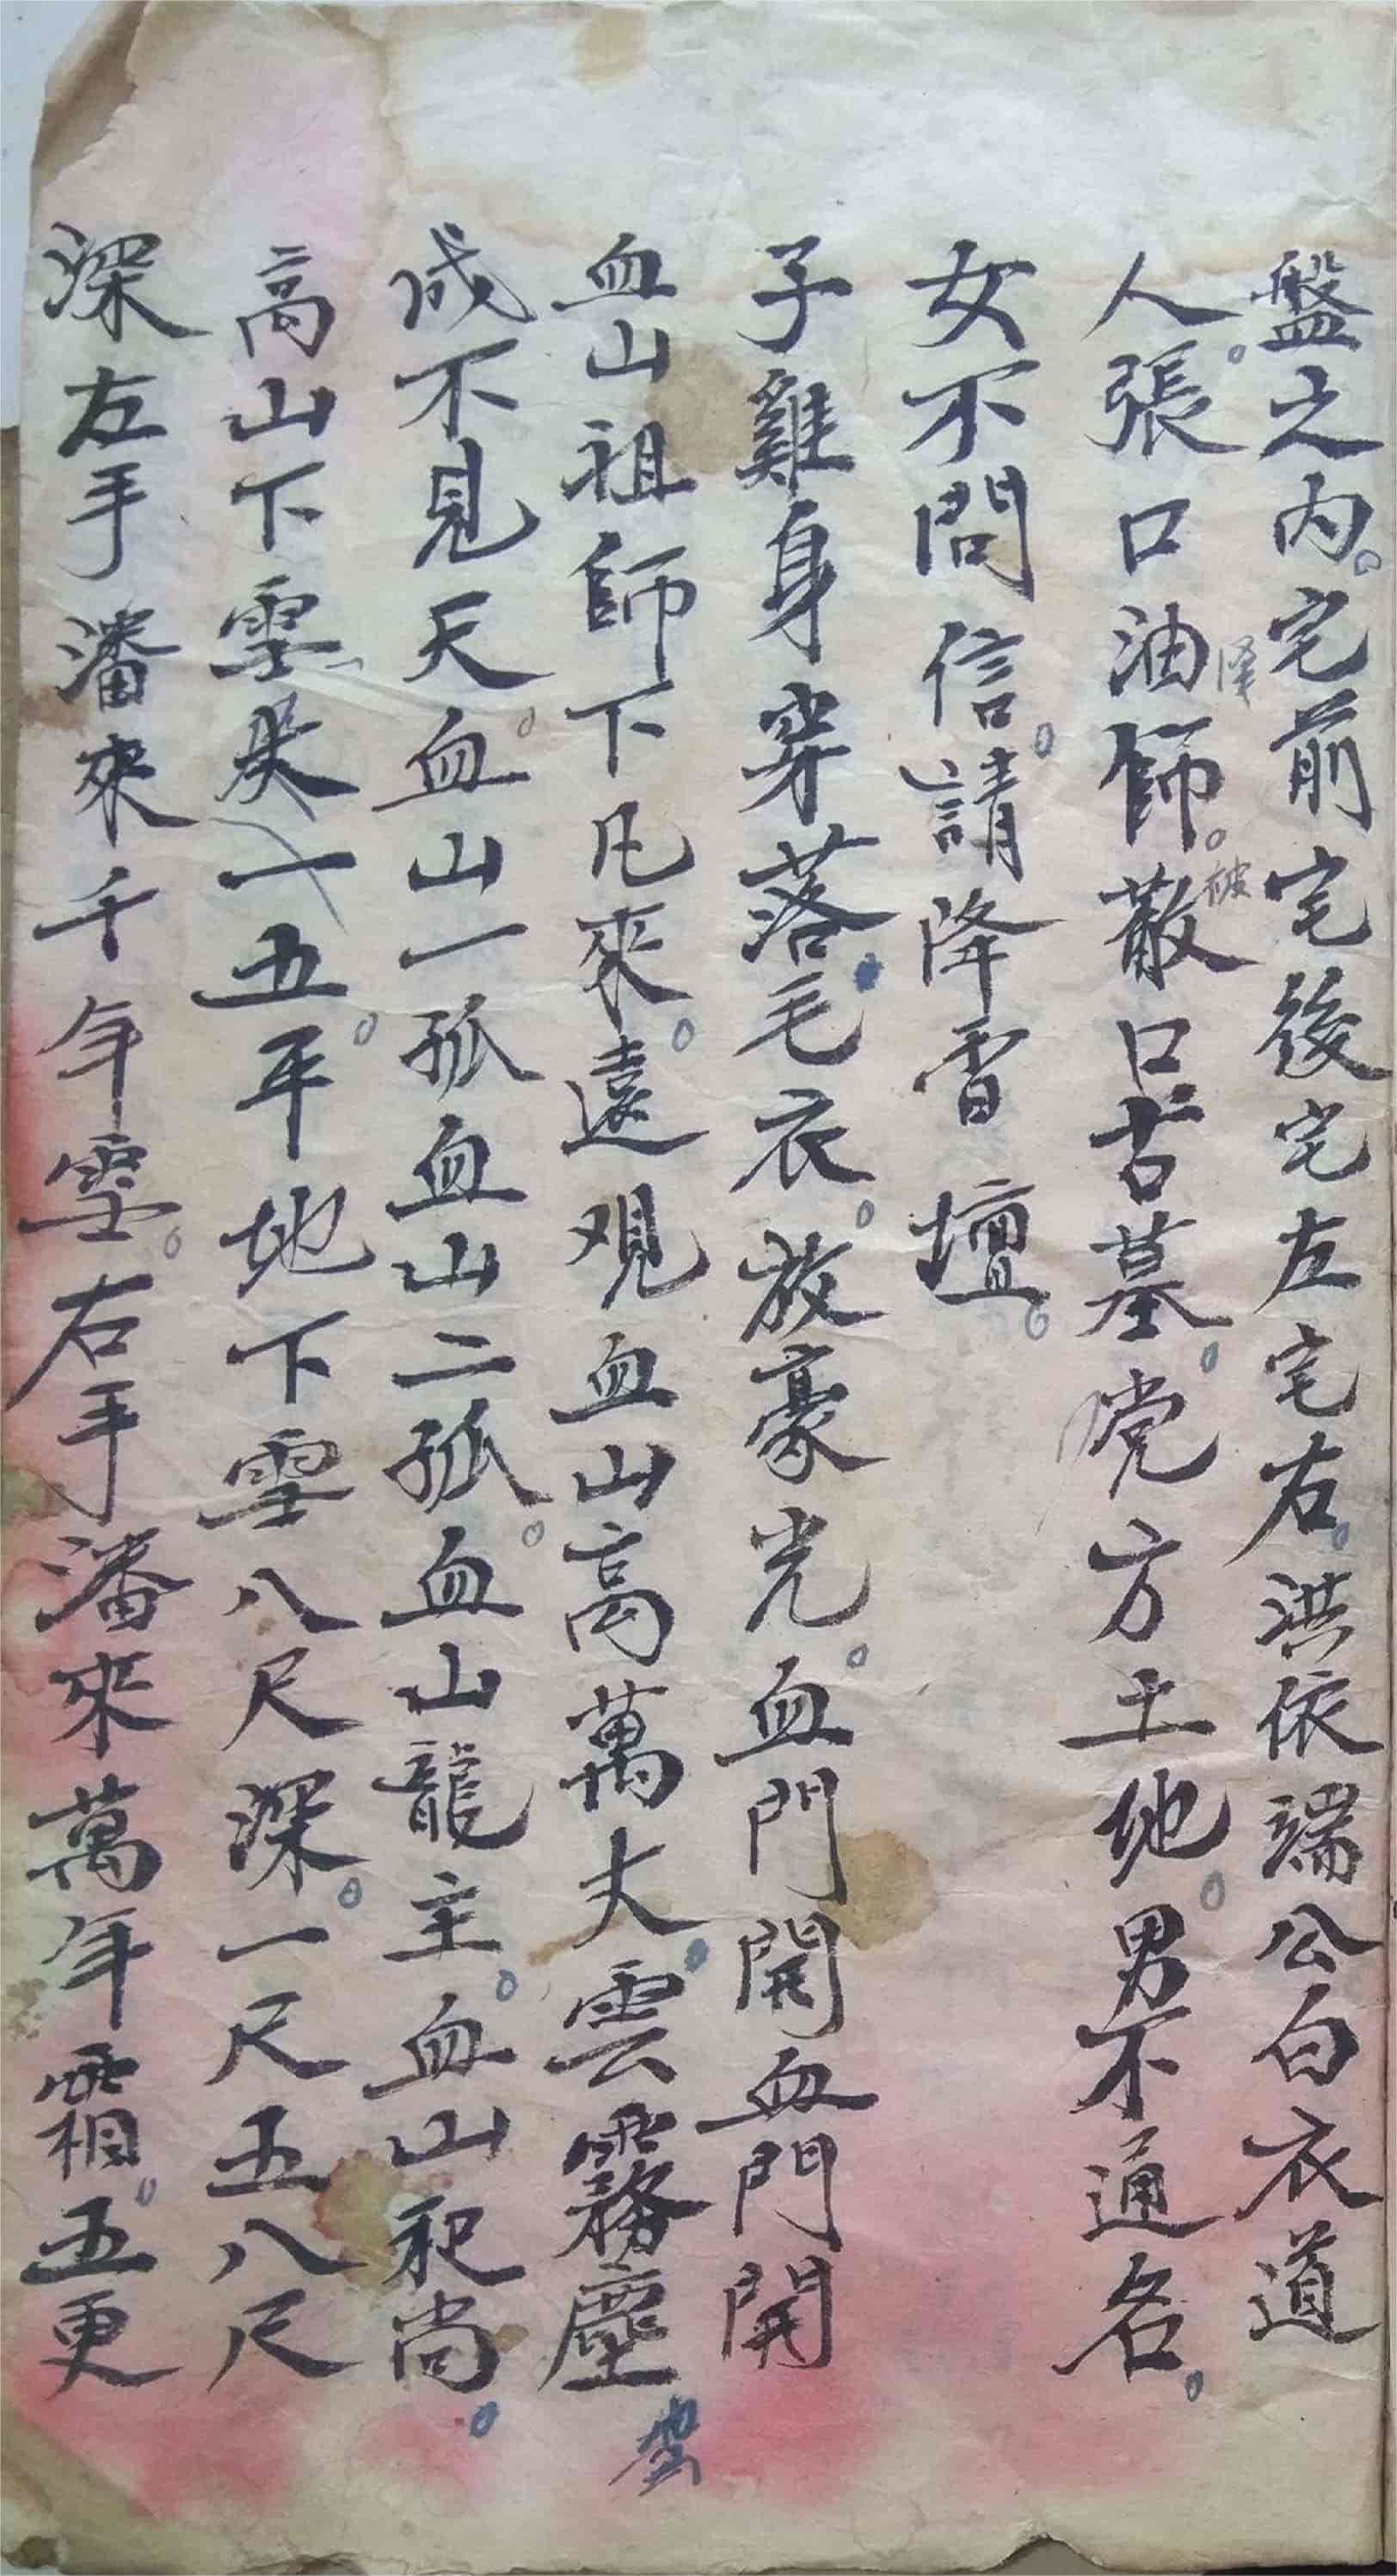 盤之内。宅前宅後宅左宅右。洪依端公白衣道
人。張口油師。散口古墓。党方土地。男不通名。
女不問信。請降香壇。
子雞身穿落毛衣。放豪光。血門開血門開
血山祖師下凡來。遠观血山高萬丈。雲霧塵
成不見天。血山一孤血山二孤。血山龍主。血山祀尚。
高山下雪一五。平地下雪八尺深。一尺五八尺
深左手潘來千年雪。右手潘來萬年霜。五更